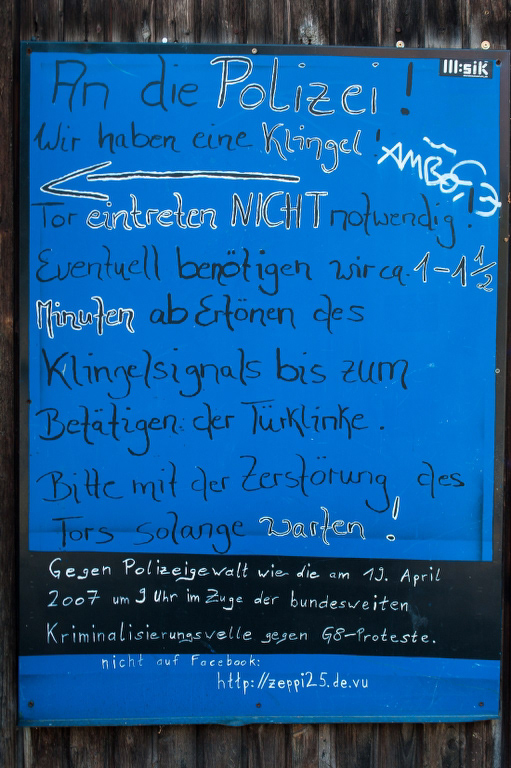 III:sik
An die Polizei!
Wir haben eine Klingel!
Tor eintreten NICHT notwendig!
Eventuell benötigen wir ca. 1-1 1/2
Minuten ab Ertönen des
Klingelsignals bis zum
Betätigen der Türklinke.
Bitte mit der Zerstörung des
Tors solange warten!
Gegen Polizeigewalt wie die am 19. April
2007 um 9 Uhr im Zuge der bundesweiten
Kriminalisierungswelle gegen G8-Proteste.
nicht auf Facebook:
http://zeppi25.de.vu